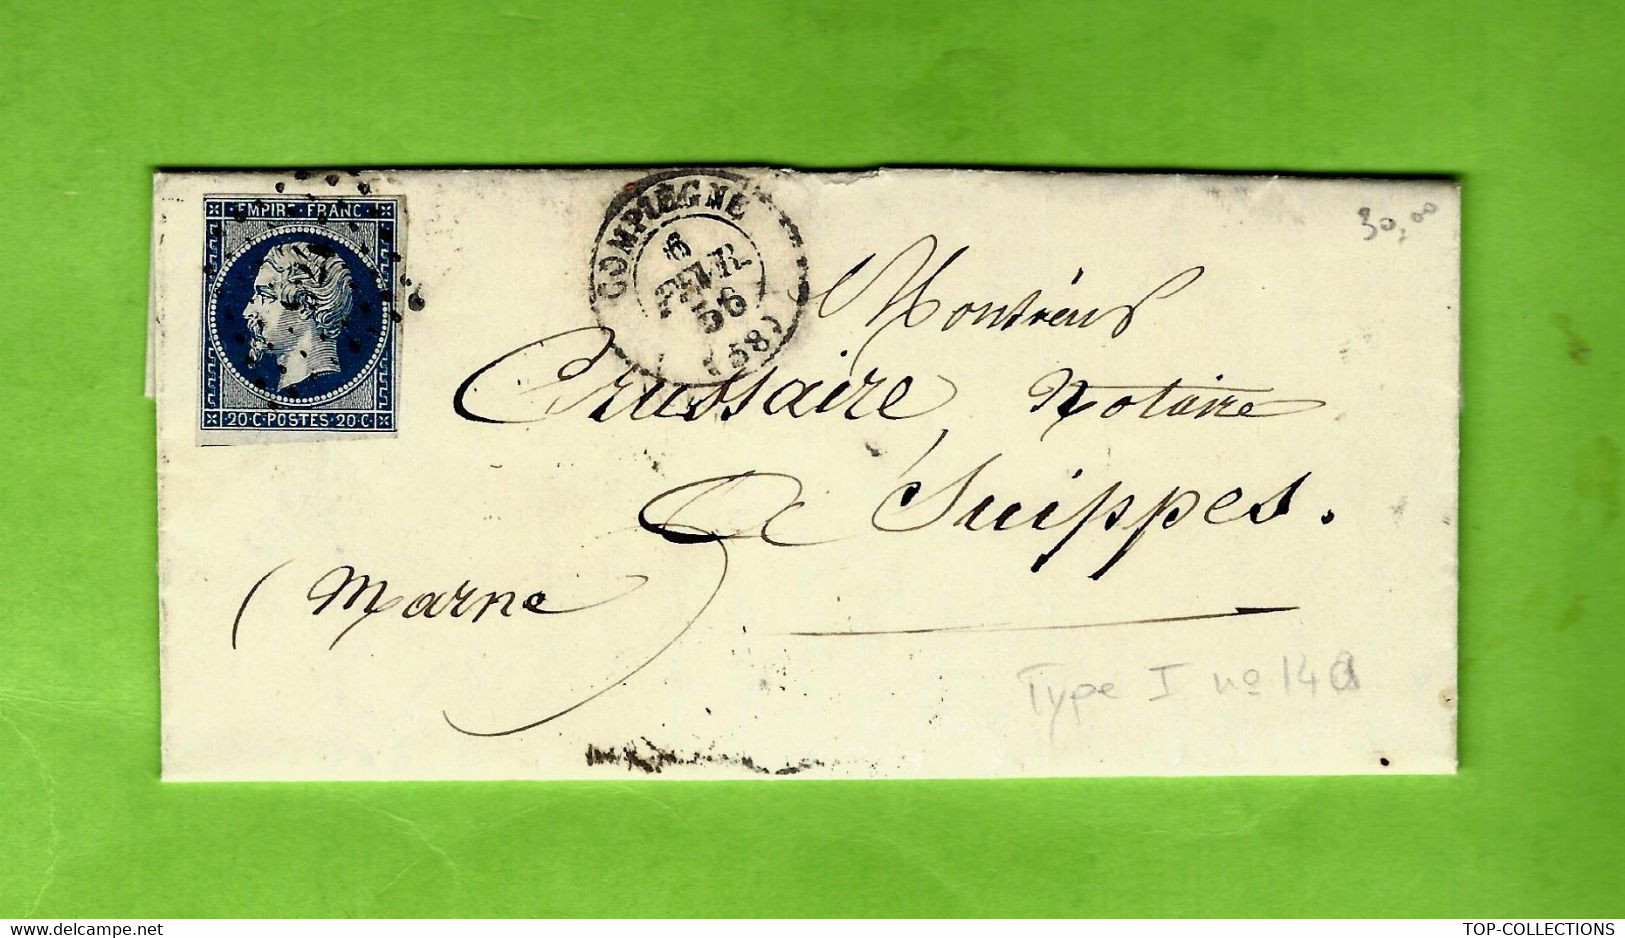 EMPIRE FRANC
20·C·POSTES·20·C
COMPIEGNE
6
FEVR
56
(58)
30,00
Monsieur
Crussaire Notaire
A Suippes.
(Marne)
Type I no 14a
TOP-COLLECTIONS